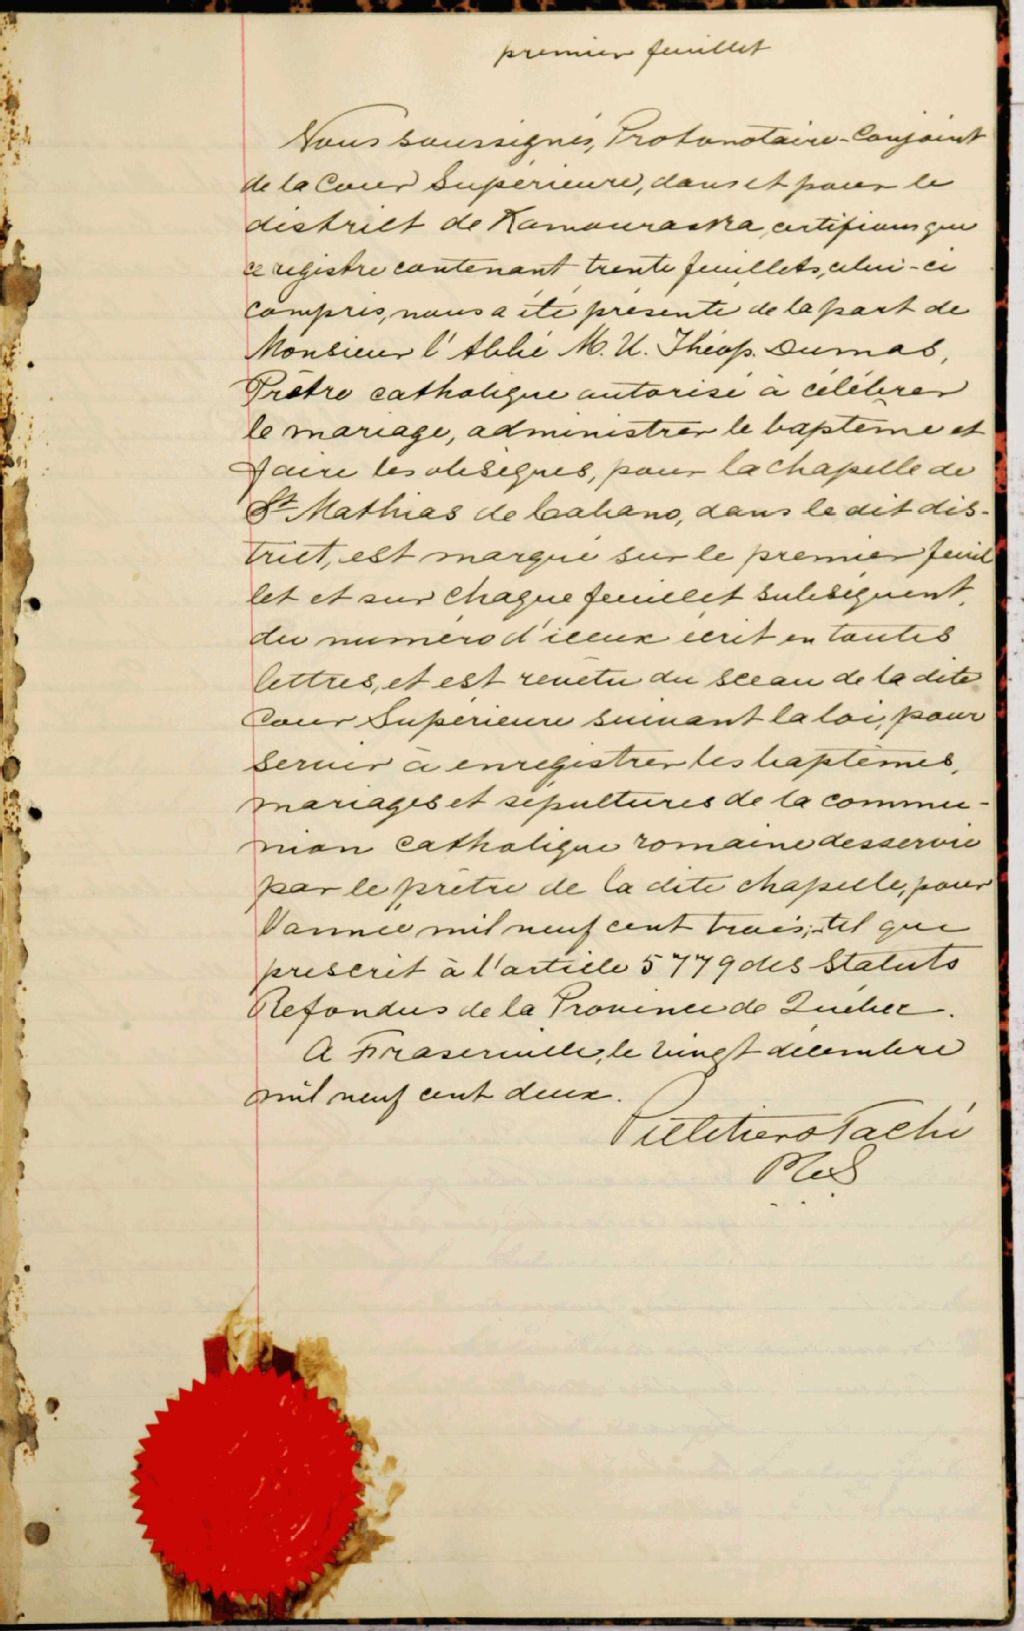 premier feuillet
Nous soussignés, Protonotaire-Conjoint
de la Cour Supérieure, dans et pour le
district de Kamouraska, certifions que
ce registre contenant trente feuillets, celui-ci
compris, nous a été présenté de la part de
Monsieur l'Abbé M. U. Théop. Dumas,
Prêtre catholique autorisé à célébrer
le mariage, administrer le baptême et
faire les obsèques, pour la chapelle de
St Mathias de Cabano, dans le dit dis-
trict, est marqué sur le premier feuil
let et sur chaque feuillet subséquent,
du numéro d'iceux écrit en toutes
lettres, et est revêtu du sceau de la dite
Cour Supérieure suivant la loi, pour
servir à enregistrer les baptêmes,
mariages et sépultures de la commu-
nion catholique romaine desservie
par le prêtre de la dite chapelle, pour
l'année mil neuf cent trois; tel que
prescrit à l'article 5779 des Statuts
Refondus de la Province de Québec.
A Fraserville, le vingt décembre
mil neuf cent deux.
Pelletier & Taché
PCS